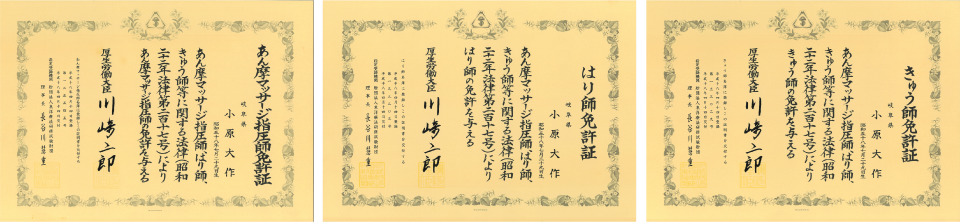 あん摩マッサージ指圧師免許証
岐阜県
小原大作
昭和五十八年七月二十九日生
あん摩マッサージ指圧師、はり師、
きゅう師等に関する法律（昭和
二十二年法律第二百十七号）により
あん摩マッサージ指圧師の免許を与える
厚生労働大臣 川崎二郎
はり師免許証
岐阜県
小原大作
昭和五十八年七月二十九日生
あん摩マッサージ指圧師、はり師、
きゅう師等に関する法律（昭和
二十二年法律第二百十七号）により
はり師の免許を与える
厚生労働大臣 川崎二郎
きゅう師免許証
岐阜県
小原大作
昭和五十八年七月二十九日生
あん摩マッサージ指圧師、はり師、
きゅう師等に関する法律（昭和
二十二年法律第二百十七号）により
きゅう師の免許を与える
厚生労働大臣 川崎二郎